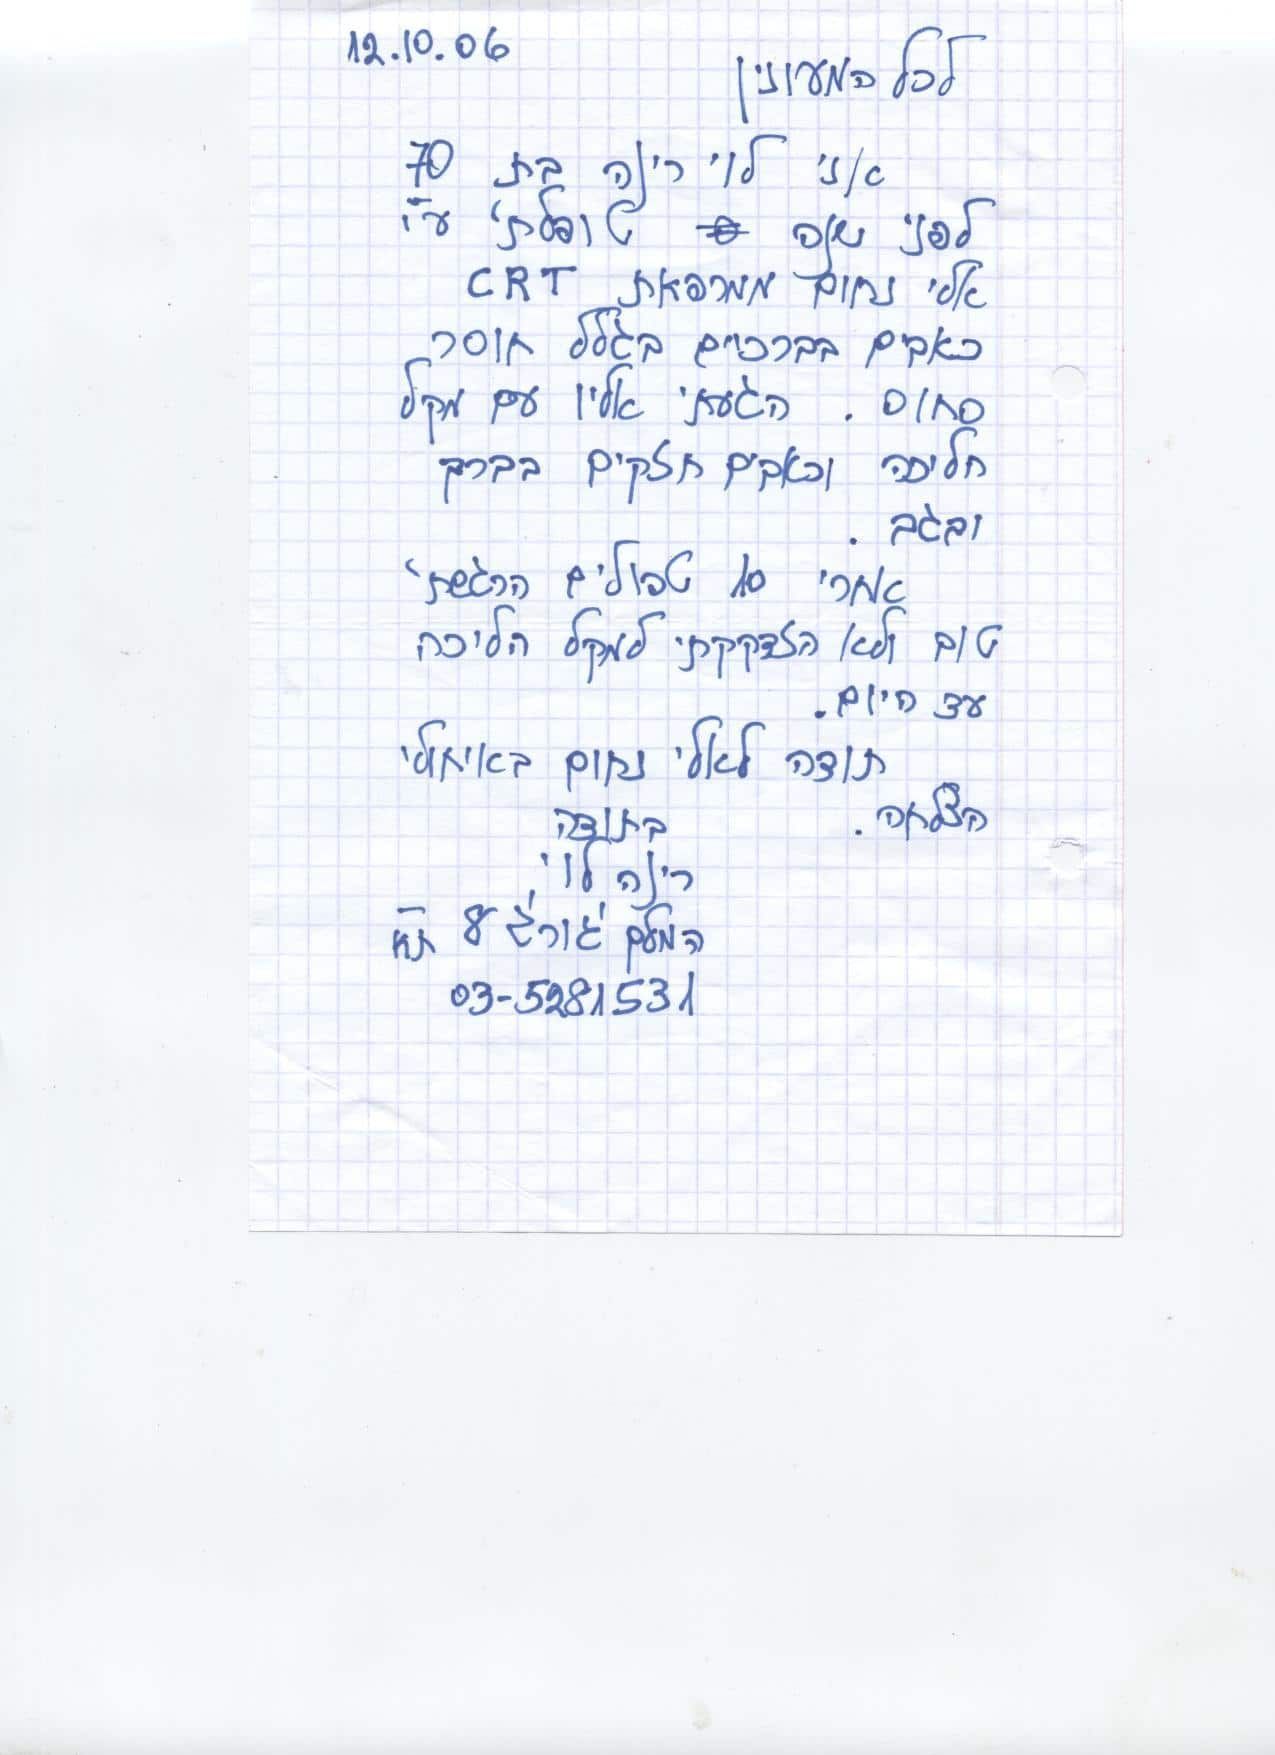 12.10.06
לכל המעונין
אני לוי רינה בת 70
לפני שנה טופלתי ע"י
אלי נחום ממרפאת CRT
כאבים בברכיים בגלל חוסר
סחוס. הגעתי אליו עם מקל
הליכה וכאבים חזקים בברך
ובגב.
אחרי 10 טפולים הרגשתי
טוב ולא הזדקקתי למקל הליכה
עד היום.
תודה לאלי נחום באיחולי
הצלחה.
בתודה
רינה לוי
המלך ג'ורג' 8 ת"א
03-5281531